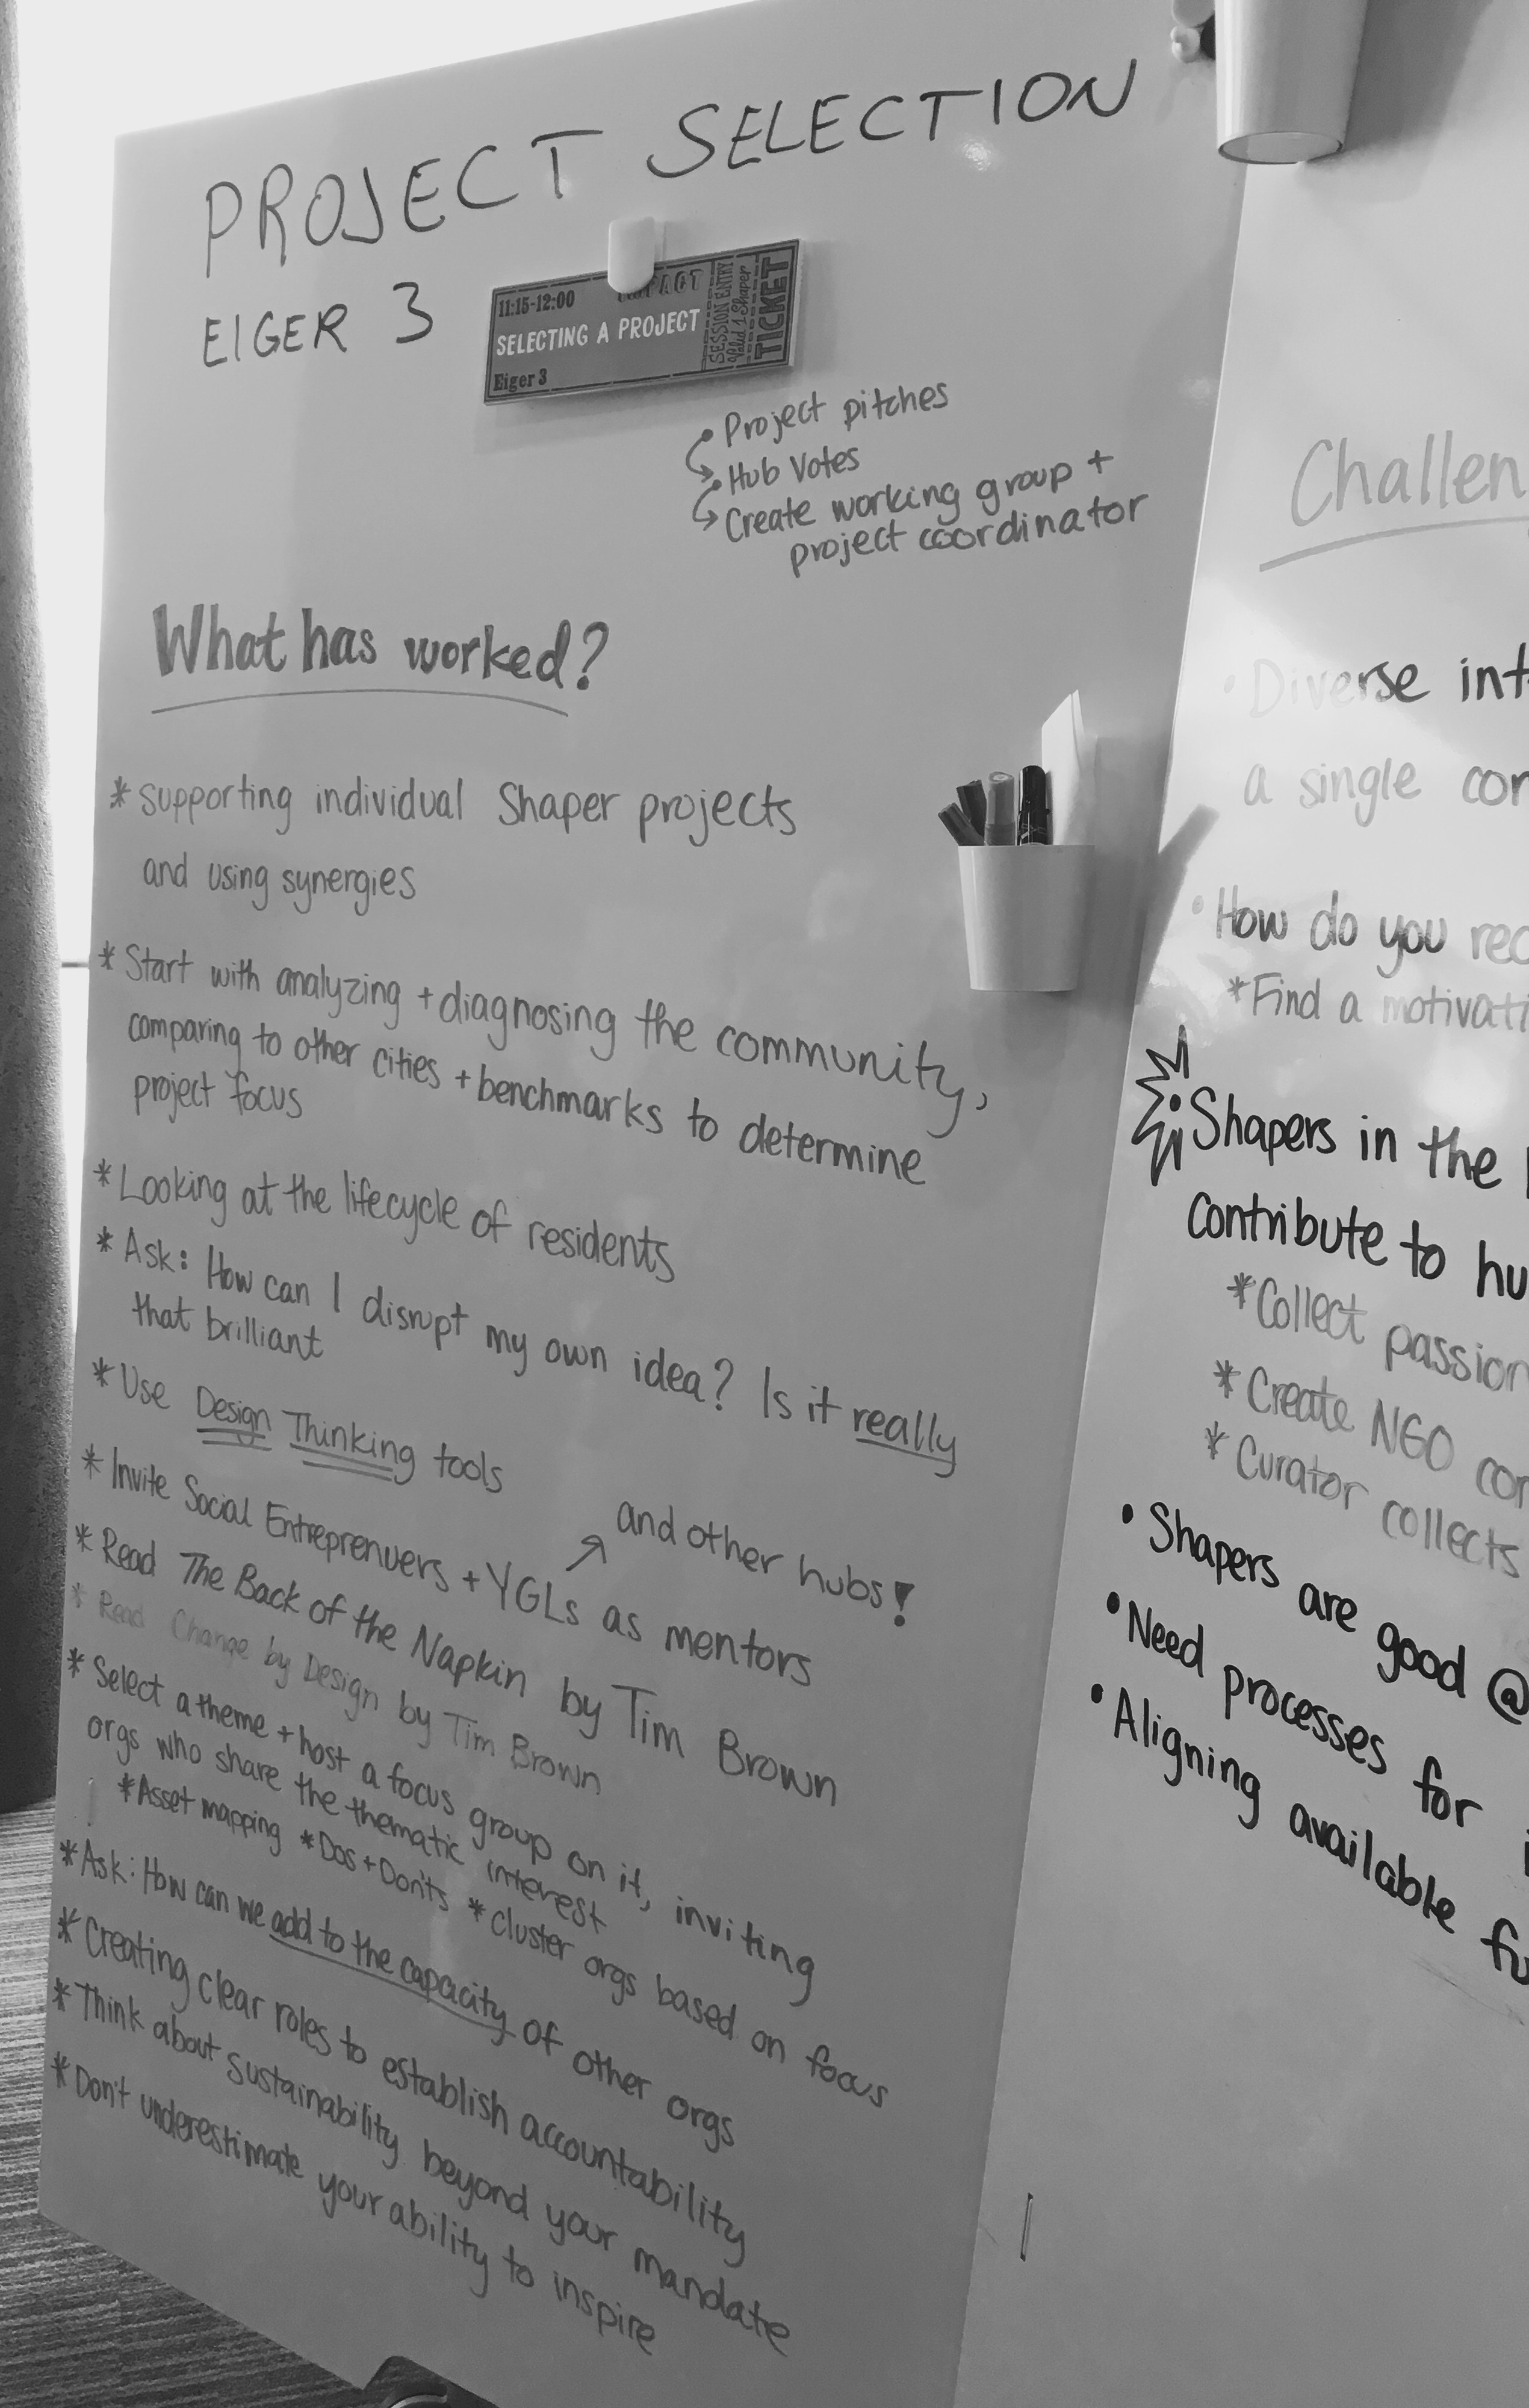 PROJECT SELECTION
EIGER 3
11:15-12:00
IMPACT
SELECTING A PROJECT
Eiger 3
SESSION ENTRY
Valid 1 Shaper
TICKET
Project pitches
Hub Votes
Create working group +
project coordinator
What has worked?
* supporting individual Shaper projects
and using synergies
* Start with analyzing + diagnosing the community,
comparing to other cities + benchmarks to determine
project focus
* Looking at the lifecycle of residents
* Ask: How can I disrupt my own idea? Is it really
that brilliant
* Use Design Thinking tools
and other hubs!
* Invite Social Entreprenuers + YGLs as mentors
* Read The Back of the Napkin by Tim Brown
* Read Change by Design by Tim Brown
* Select a theme + host a focus group on it, inviting
orgs who share the thematic interest
* Asset mapping * Dos + Don'ts * cluster orgs based on focus
* Ask: How can we add to the capacity of other orgs
* Creating clear roles to establish accountability
* Think about sustainability beyond your mandate
* Don't underestimate your ability to inspire
Challen
• Diverse int
a single
• How do you
* Find a motivati
• Shapers in the
contribute to hu
* Collect passion
* Create NGO
* Curator collects
• Shapers are good @
• Need processes for
• Aligning available fu